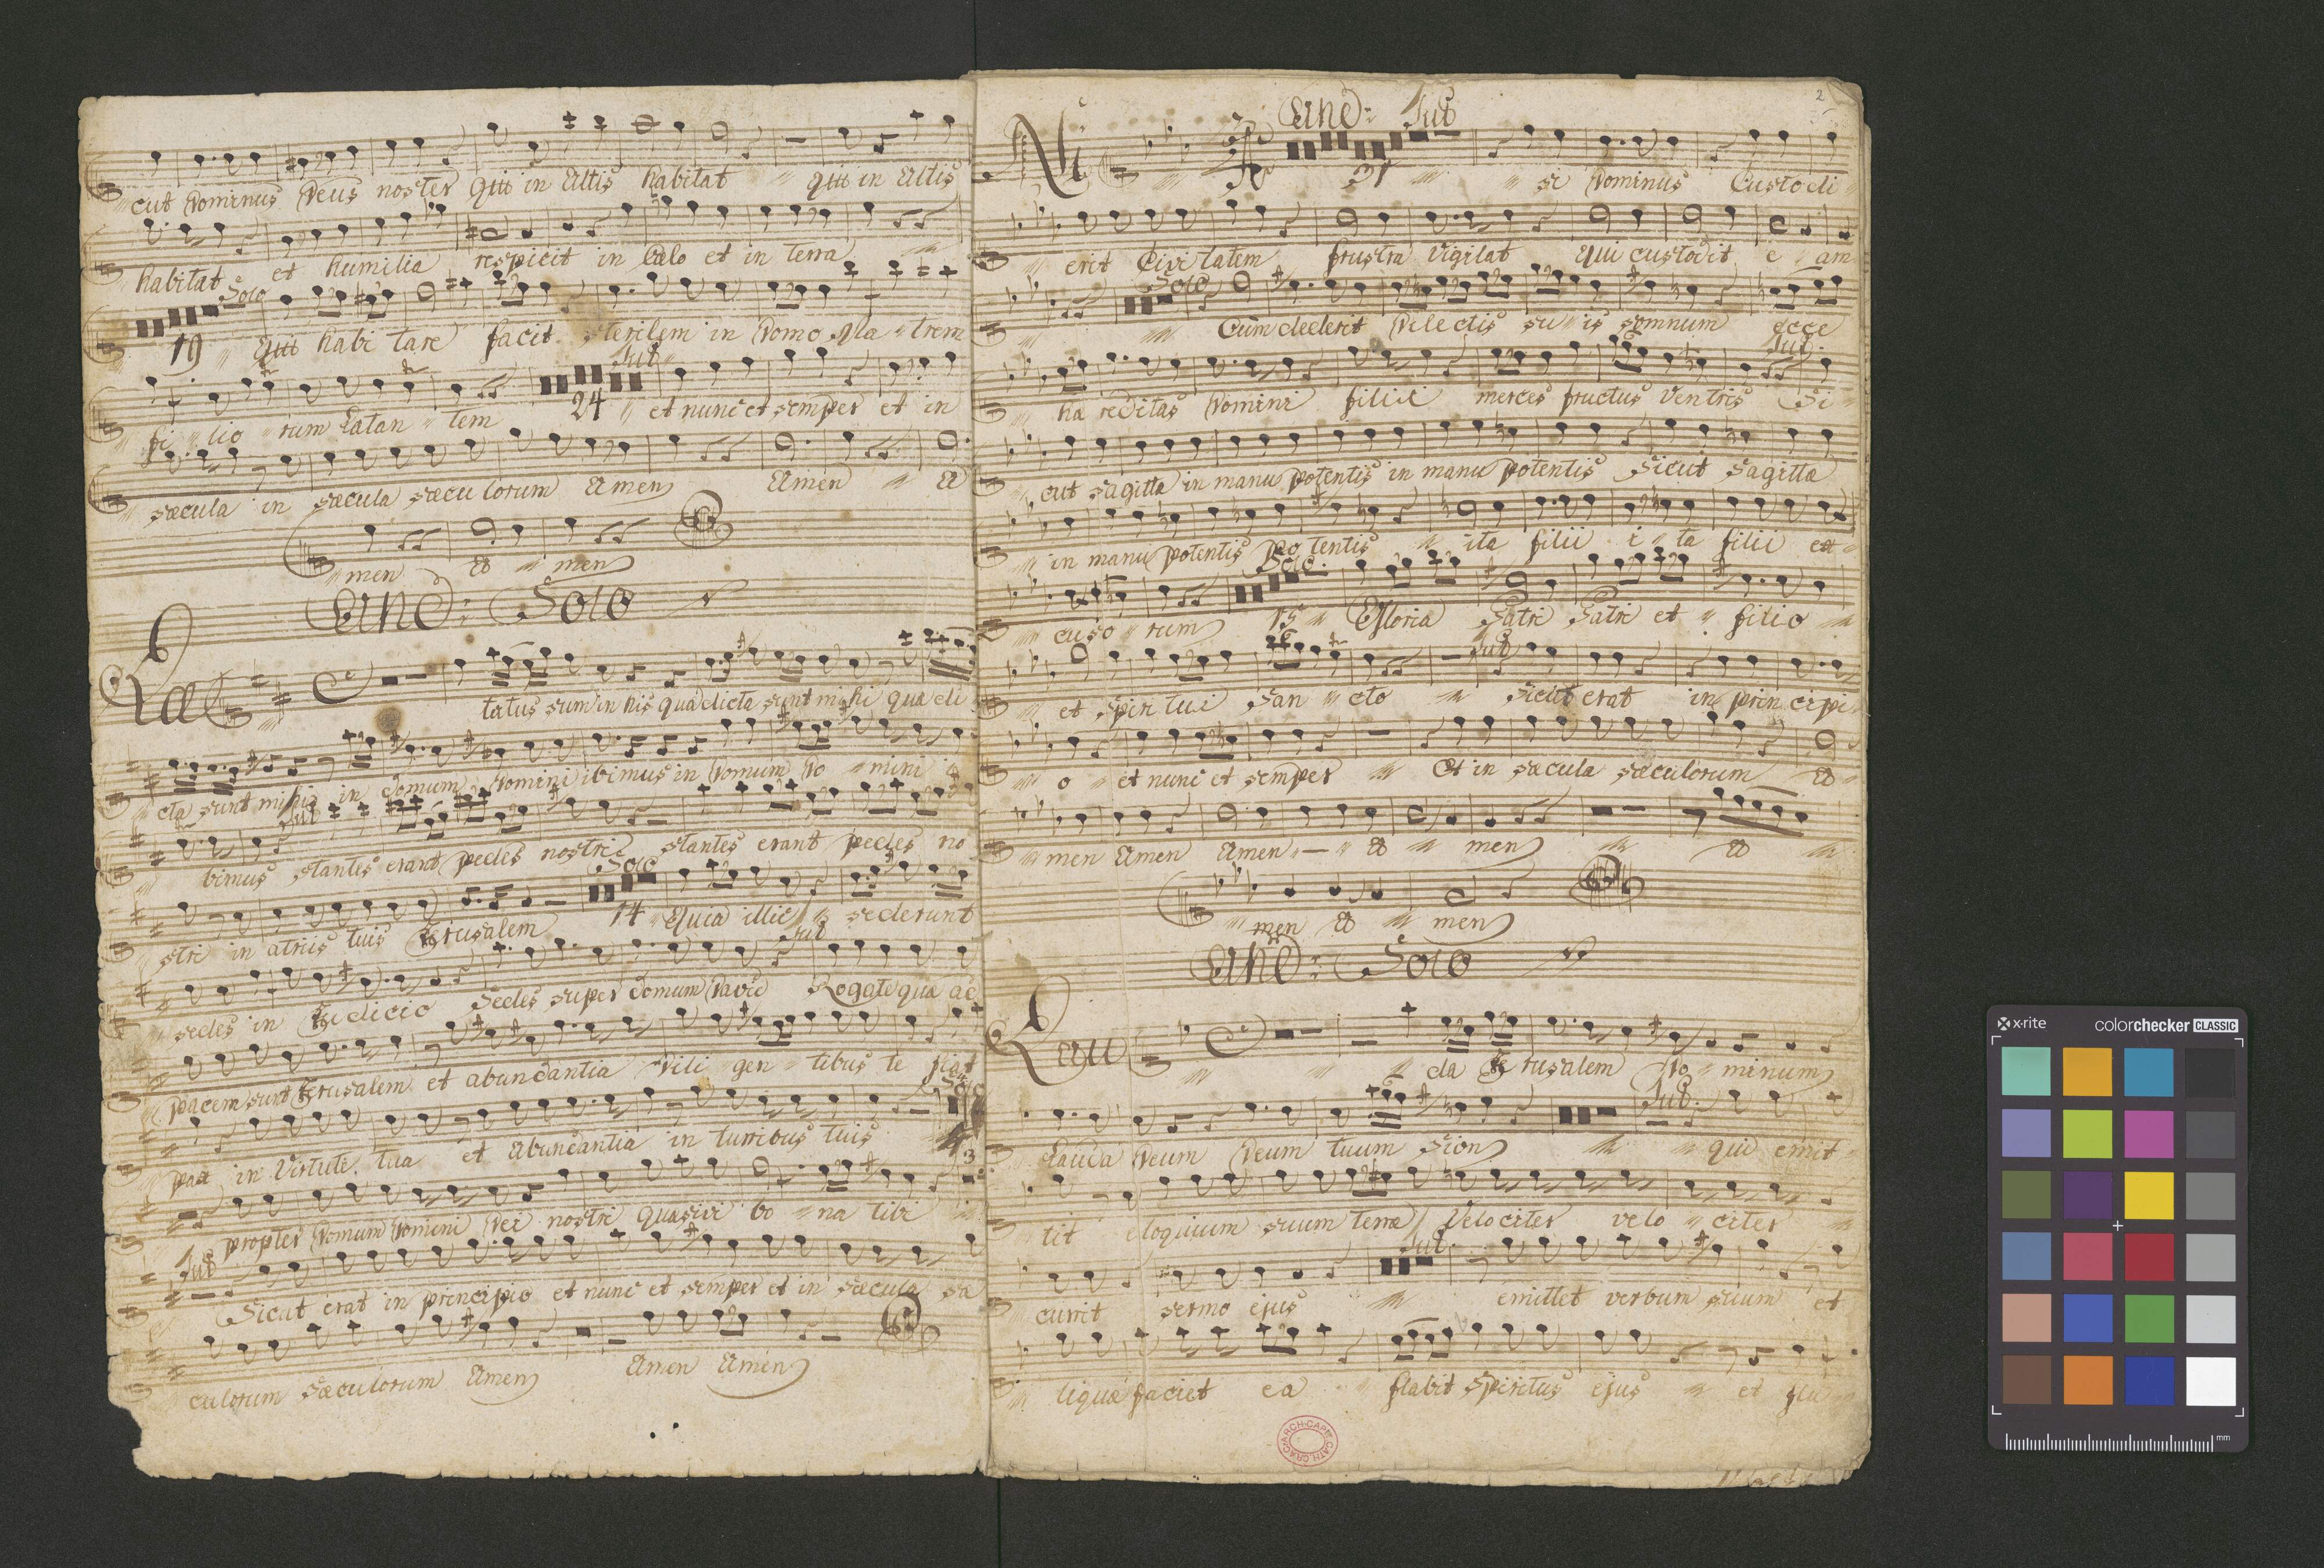 cut Dominus Deus noster qui in Altis habitat qui in Altis
habitat et humilia respicit in Cælo et in terra
Solo
19 qui habi tare facit sterilem in Domo Ma trem
Tut
fi lio rum Latan tem 24 et nunc et semper et in
sæcula in sæcula sæcu lorum Amen Amen A
men A men
And: Solo
Læ tatus sum in his quæ dicta sunt mihi quæ di
cta sunt mihi in domum Domini ibimus in Domum Do mini i
Tut
bimus stantes erant pedes nostri stantes erant pedes no
Solo
stri in atriis tuis Jerusalem 14 Quia illic sederunt
Tut
sedes in Judicio Sedes super domum David Rogate quæ ad
pacem sunt Jerusalem et abundantia Dili gen tibus te fiat
Solo
pax in Virtute tua et Abundantia in turribus tuis
3
propter Domum Domini Dei nostri quæsivi bo na tibi
Tut
Sicut erat in principio et nunc et semper et in sæcula sæ
culorum Sæculorum Amen Amen Amen
2
And: Tut
Ni 31 si Dominus Custodi
erit Civi tatem frustra Vigilat Qui custodit e am
Solo
Cum dederit Dilectis su is somnum ecce
Tut.
hæ reditas Domini filii merces fructus Ventris Si
cut sagitta in manu potentis in manu potentis Sicut Sagitta
in manu potentis po tentis ita filii i ta filii ex
Solo.
cuso rum 15 Gloria Patri Patri et filio
Tut
et Spiri tui San cto Sicut erat in prin cipi
o et nunc et semper Et in sæcula sæculorum A
men Amen Amen A men A
men A men
And: Solo
Lau da Je rusalem Do minum
Tut.
Lauda Deum Deum tuum Sion qui emit
tit eloquium suum terræ Velociter velo citer
Tut.
currit sermo ejus emittet verbum suum et
liquæ faciet ea flabit Spiritus ejus et flu
ARCH·CAPIT·CATH·CRAC
x-rite colorchecker CLASSIC
mm